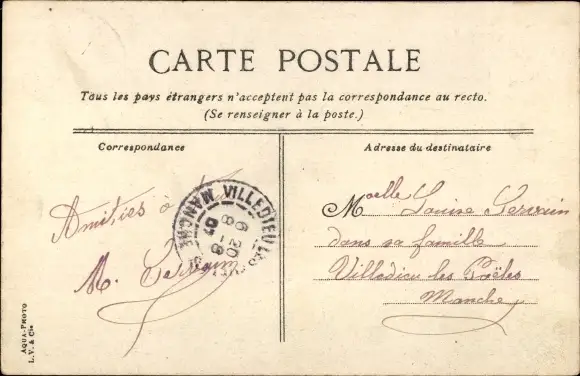 CARTE POSTALE
Tous les pays étrangers n'acceptent pas la correspondance au recto.
(Se renseigner à la poste.)
Correspondance
Adresse du destinataire
Amitiés à
M.
Moelle Louise
dans sa famille
Villedieu les Poëles
Manche
VILLEDIEU LES
MANCHE
6 20
8 - 8
AQUA-PHOTO
L. V. & Cie